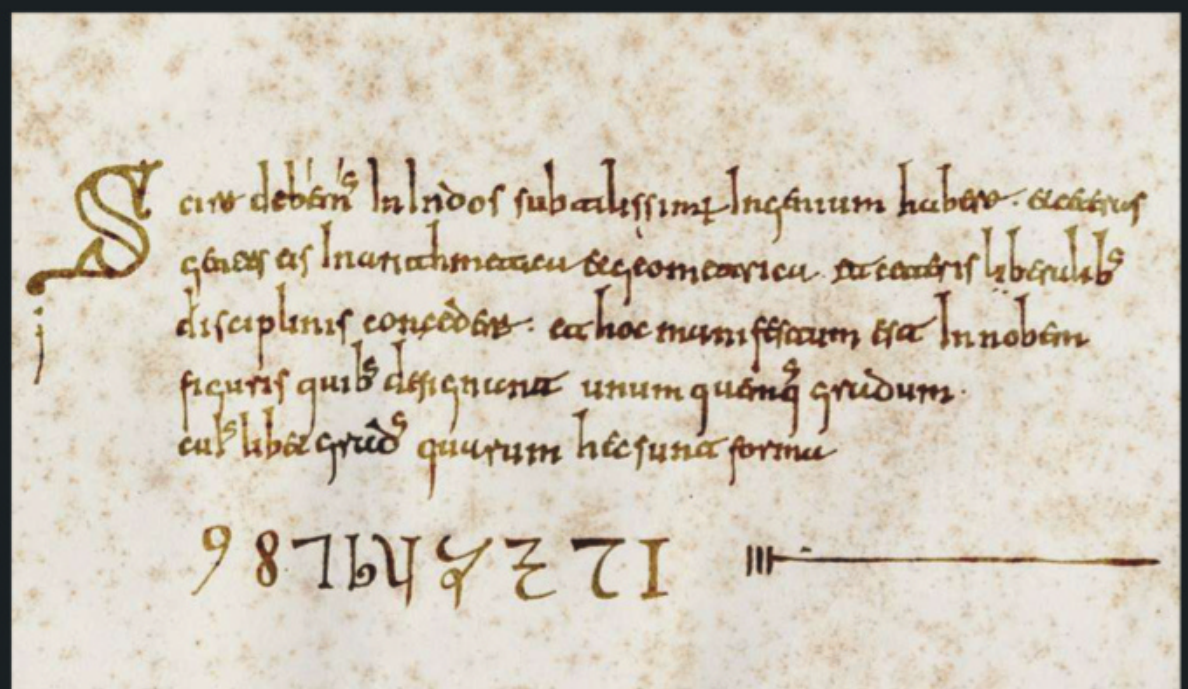 Scire debem͛ In Indos subtilissimũ Ingenium habere · et ceteras
gentes eis In arithmetica et geometrica · et ceteris liberalib͛
disciplinis concedere · et hoc manifestum est In nobem
figuris quib͛ designant unum quemq͛ gradum ·
cuiuslibet grad͛ quarum hec sunt forma
9 8 7 6 5 4 3 2 1